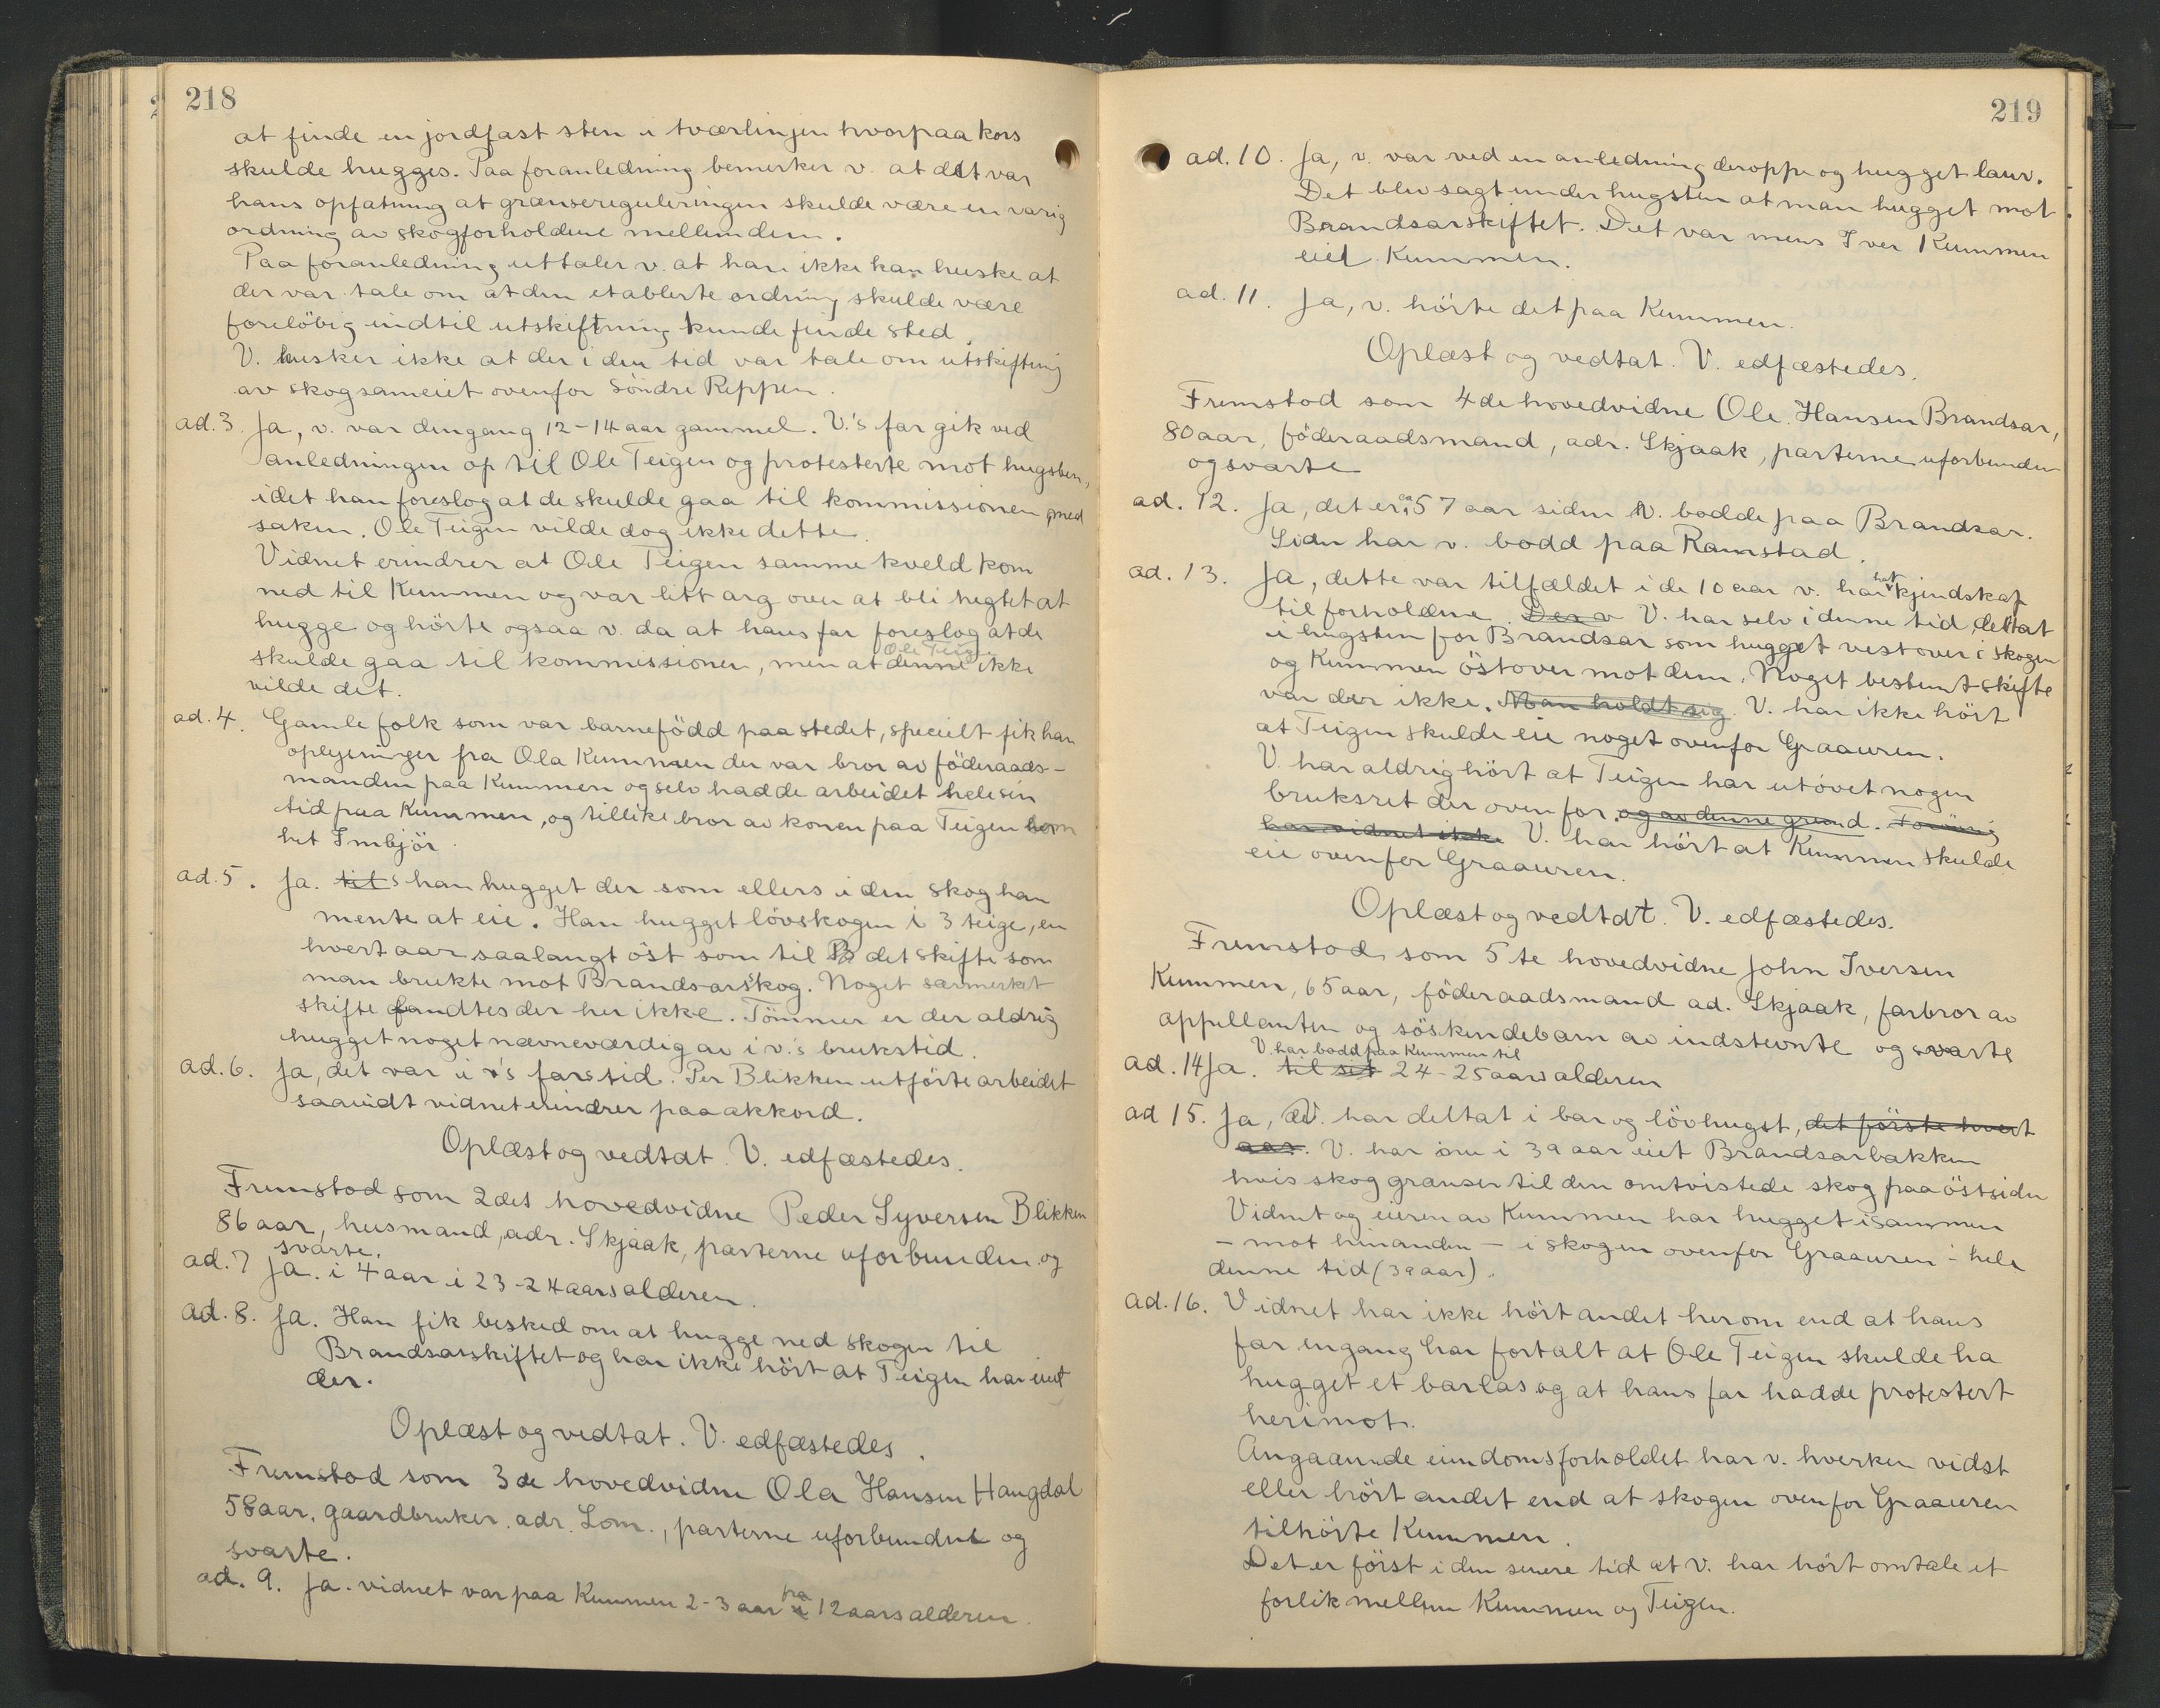 218
at finde en jordfast sten i tværlinjen hvorpaa kors
skulde hugges. Paa foranledning bemerker v. at det var
hans opfatning at grænsereguleringen skulde være en varig
ordning av skogforholdene mellem dem.
Paa foranledning uttaler v. at han ikke kan huske at
der var tale om at den etablerte ordning skulde være
foreløbig indtil utskiftning kunde finde sted.
V. husker ikke at der i den tid var tale om utskiftning
av skogsameiet ovenfor Söndre Reppen.
ad. 3. Ja, v. var dengang 12-14 aar gammel. V.'s far gik ved
anledningen op til Ole Teigen og protesterte mot hugsten,
idet han foreslog at de skulde gaa til kommissionen med
saken. Ole Teigen vilde dog ikke dette.
Vidnet erindrer at Ole Teigen samme kveld kom
ned til Kummen og var litt arg over at bli negtet at
hugge og hörte ogsaa v. da at hans far foreslog at de
skulde gaa til kommissionen, men at denne Ole Teigen ikke
vilde det.
ad. 4. Gamle folk som var barnefödd paa stedet, specielt fik han
oplysninger fra Ola Kummen der var bror av föderaads-
manden paa Kummen og selv hadde arbeidet hele sin
tid paa Kummen, og tillike bror av konen paa Teigen som
het Imbjör.
ad. 5. Ja. til s han hugget der som ellers i den skog han
mente at eie. Han hugget lövskogen i 3 teige, en
hvert aar saalangt öst som til B det skifte som
man brukte mot Brandsarskog. Noget særmerket
skifte fandtes der her ikke. Tömmer er der aldrig
hugget noget nævneværdig av i v.'s brukstid.
ad. 6. Ja, det var i v's fars tid. Per Blikken utförte arbeidet
saavidt vidnet erindrer paa akkord.
Oplæst og vedtat. V. edfæstedes.
Fremstod som 2det hovedvidne Peder Syversen Blikken
86 aar, husmand, adr. Skjaak, parterne uforbunden og
svarte.
ad. 7 Ja. i 4 aar i 23-24 aars alderen.
ad. 8. Ja. Han fik besked om at hugge ned skogen til
Brandsarskiftet og har ikke hört at Teigen har eiet
der.
Oplæst og vedtat. V. edfæstedes.
Fremstod som 3de hovedvidne Ola Hansen Haugdal
58 aar, gaardbruker. adr. Lom., parterne uforbundne og
svarte.
ad. 9. Ja. vidnet var paa Kummen 2-3 aar i fra 12 aars alderen.
219
ad. 10. Ja, v. var ved en anledning deroppe og hugget lauv.
Det blev sagt under hugsten at man hugget mot
Brandsarskiftet. Det var mens Iver Kummen
eiet Kummen.
ad. 11. Ja, v. hörte det paa Kummen.
Oplæst og vedtat. V. edfæstedes.
Fremstod som 4de hovedvidne Ole Hansen Brandsar,
80 aar, föderaadsmand, adr. Skjaak, parterne uforbunden
og svarte
ad. 12. Ja, det er ca 57 aar siden V. bodde paa Brandsar.
Siden har v. bodd paa Ramstad.
ad. 13. Ja, dette var tilfældet i de 10 aar v. har hat kjendskap
til forholdene. Der v V. har selv i denne tid deltat
i hugsten for Brandsar som hugget vestover i skogen
og Kummen östover mot dem. Noget bestemt skifte
var der ikke. Man holdt sig. V. har ikke hört
at Teigen skulde eie noget ovenfor Graauren.
V. har aldrig hört at Teigen har utövet nogen
bruksret der ovenfor. og av denne grund. Forövrig
har vidnet ikke V. har hört at Kummen skulde
eie ovenfor Graauren.
Oplæst og vedtat. V. edfæstedes.
Fremstod som 5te hovedvidne John Iversen
Kummen, 65 aar, föderaadsmand ad. Skjaak, farbror av
appellanten og söskendebarn av indstevnte og svarte
V. har bodd paa Kummen til
ad. 14 Ja. til sit 24-25 aars alderen
ad 15. Ja, V. har deltat i bar og lövhugst, det förste hvert
aar. V. har nu i 39 aar eiet Brandsarbakken
hvis skog grænser til den omtvistede skog paa östsiden
Vidnet og eieren av Kummen har hugget isammen
- mot hinanden - i skogen ovenfor Graauren i hele
denne tid (39 aar).
ad. 16. Vidnet har ikke hört andet herom end at hans
far engang har fortalt at Ole Teigen skulde ha
hugget et barlas og at hans far hadde protestert
herimot.
Angaaende eiendomsforholdet har v. hverken vidst
eller hört andet end at skogen ovenfor Graauren
tilhörte Kummen.
Det er först i den senere tid at v. har hört omtale et
forlik mellem Kummen og Teigen.